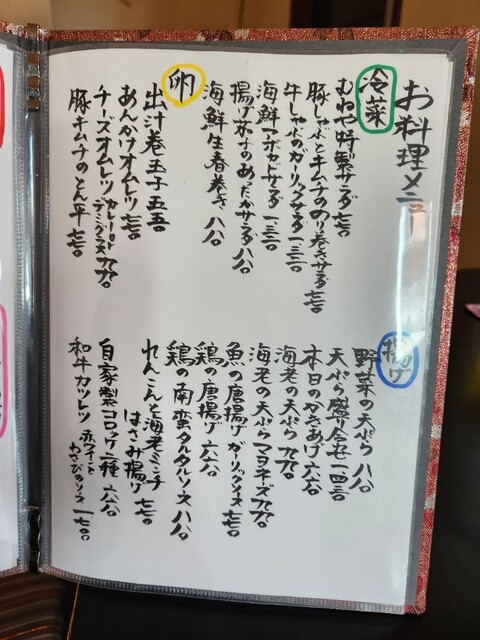 お料理メニュー
冷菜
むねや特製サラダ 七七〇
豚しゃぶとキムチののり巻きサラダ 七七〇
牛しゃぶのガーリックサラダ 一三二〇
海鮮アボカドサラダ 一三二〇
揚げ茄子のあたたかサラダ 八八〇
海鮮生春巻き 八八〇
卵
出汁巻玉子 五五〇
あんかけオムレツ 七七〇
チーズオムレツ カレー or デミグラス 九九〇
豚キムチのとん平 七七〇
揚げ
野菜の天ぷら 八八〇
天ぷら盛り合せ 一四三〇
本日のかきあげ 六六〇
海老の天ぷら 九九〇
海老の天ぷらマヨネーズ 九九〇
魚の唐揚げ ガーリックソイソース 七七〇
鶏の唐揚げ 六六〇
鶏の南蛮タルタルソース 八八〇
れんこんと海老ミンチ
はさみ揚げ 七七〇
自家製コロッケ二種 六六〇
和牛カツレツ 赤ワインと わさびのソース 一七六〇